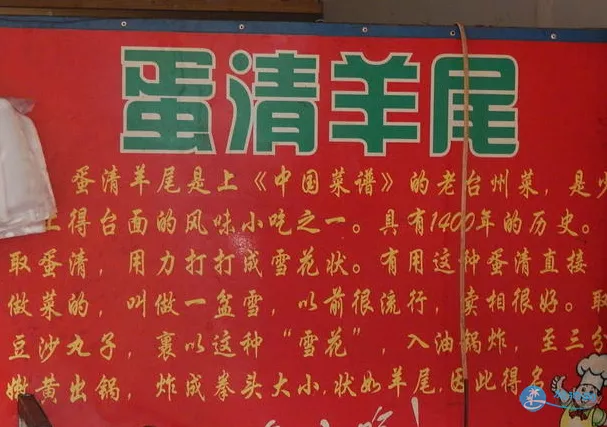 蛋清羊尾
蛋清羊尾是上《中国菜谱》的老台州菜，是
上得台面的风味小吃之一。具有1400年的历史。
取蛋清，用力打打成雪花状。有用这种蛋清直接
做菜的，叫做一盆雪，以前很流行，卖相很好。取
豆沙丸子，裹以这种“雪花”，入油锅炸，至三分
嫩黄出锅，炸成拳头大小，状如羊尾，因此得名